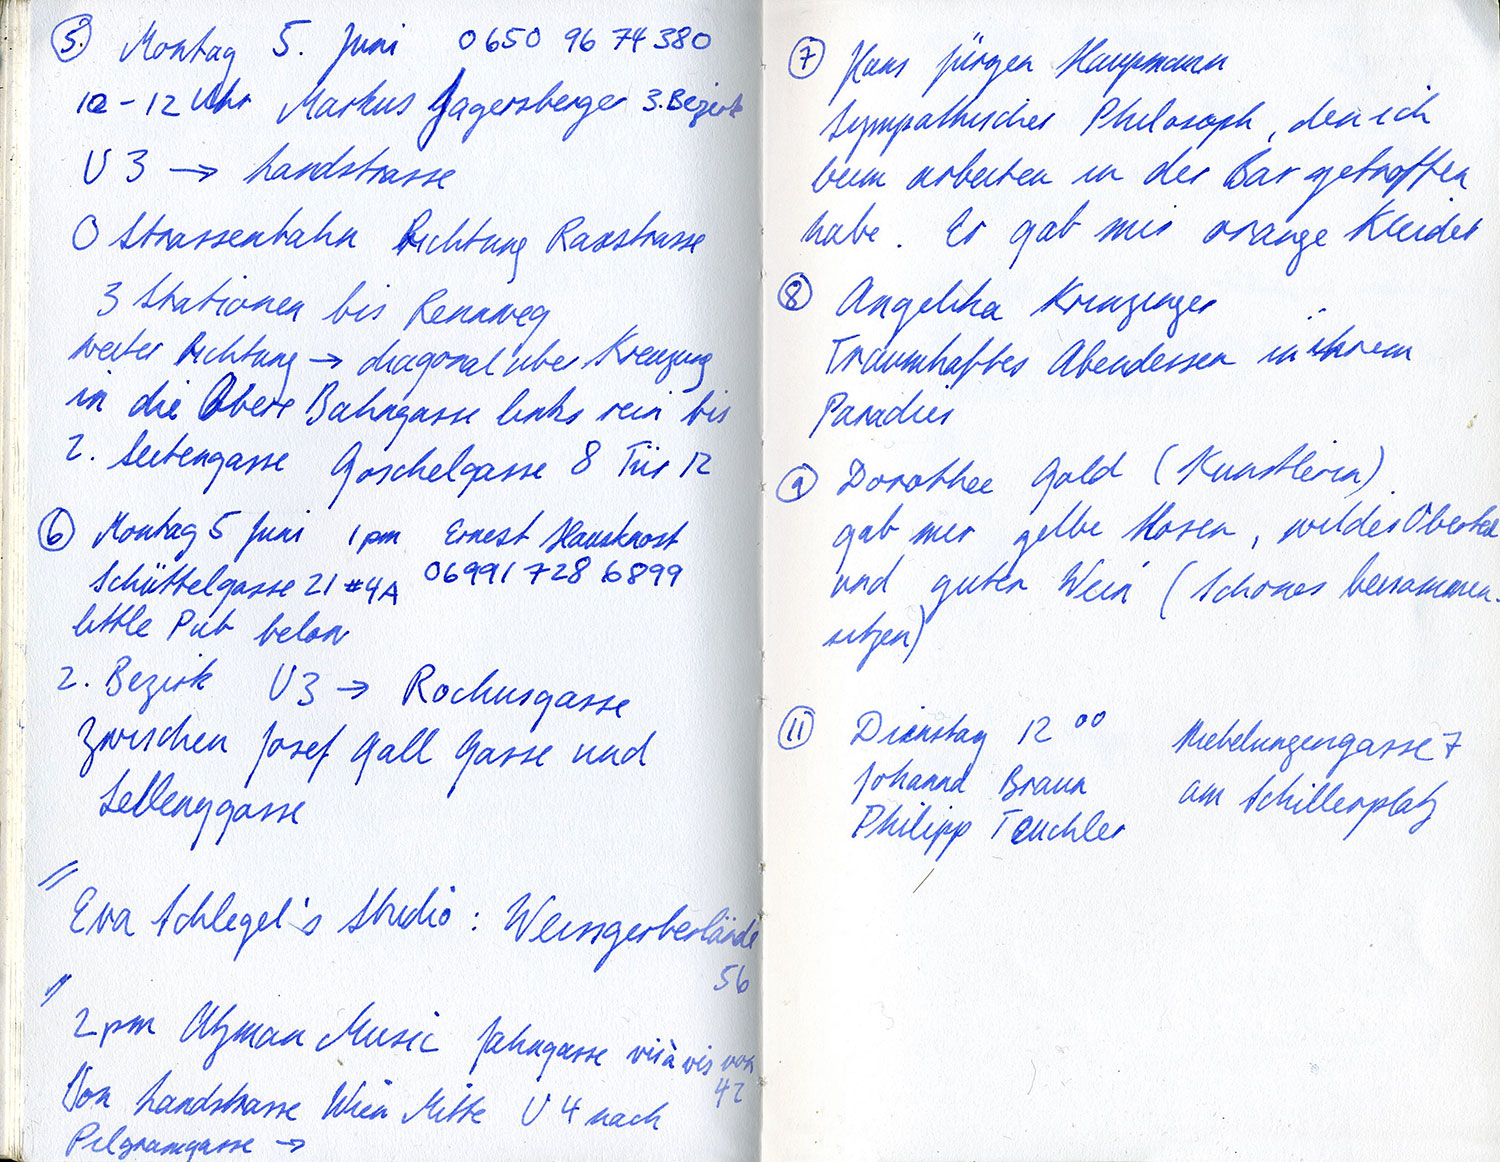 5. Montag 5. Juni 0650 96 74 380
10-12 Uhr Markus Jagersberger 3. Bezirk
U3 → Landstrasse
O Strassenbahn Richtung Raxstrasse
3 Stationen bis Rennweg
weiter Richtung → diagonal über Kreuzung
in die Obere Bahngasse links rein bis
2. Seitengasse Göschelgasse 8 Tür 12
6 Montag 5 Juni 1pm Ernest
Schüttelgasse 21 #4A 06991 728 6899
little Pub below
2. Bezirk U3 → Rochusgasse
Zwischen Josef Gall Gasse und
Sellenygasse
" Eva Schlegel's Studio: Weissgerberlände
56
" 2pm Utzman Music Jahngasse vis à vis von
42
Von Landstrasse Wien Mitte U4 nach
Pilgramgasse →
7 Hans Jürgen Hauptmann
Sympathischer Philosoph, den ich
beim arbeiten in der Bar getroffen
habe. Er gab mir orange Kleider
8 Angelika
Traumhaftes Abendessen in ihrem
Paradies
9 Dorothee Gold (Künstlerin)
gab mir gelbe Hosen, wildes Oberteil
und guten Wein (Schönes beisammen-
sitzen)
11 Dienstag 12 00 Nibelungengasse 7
Johanna Braun am Schillerplatz
Philipp Teuchler